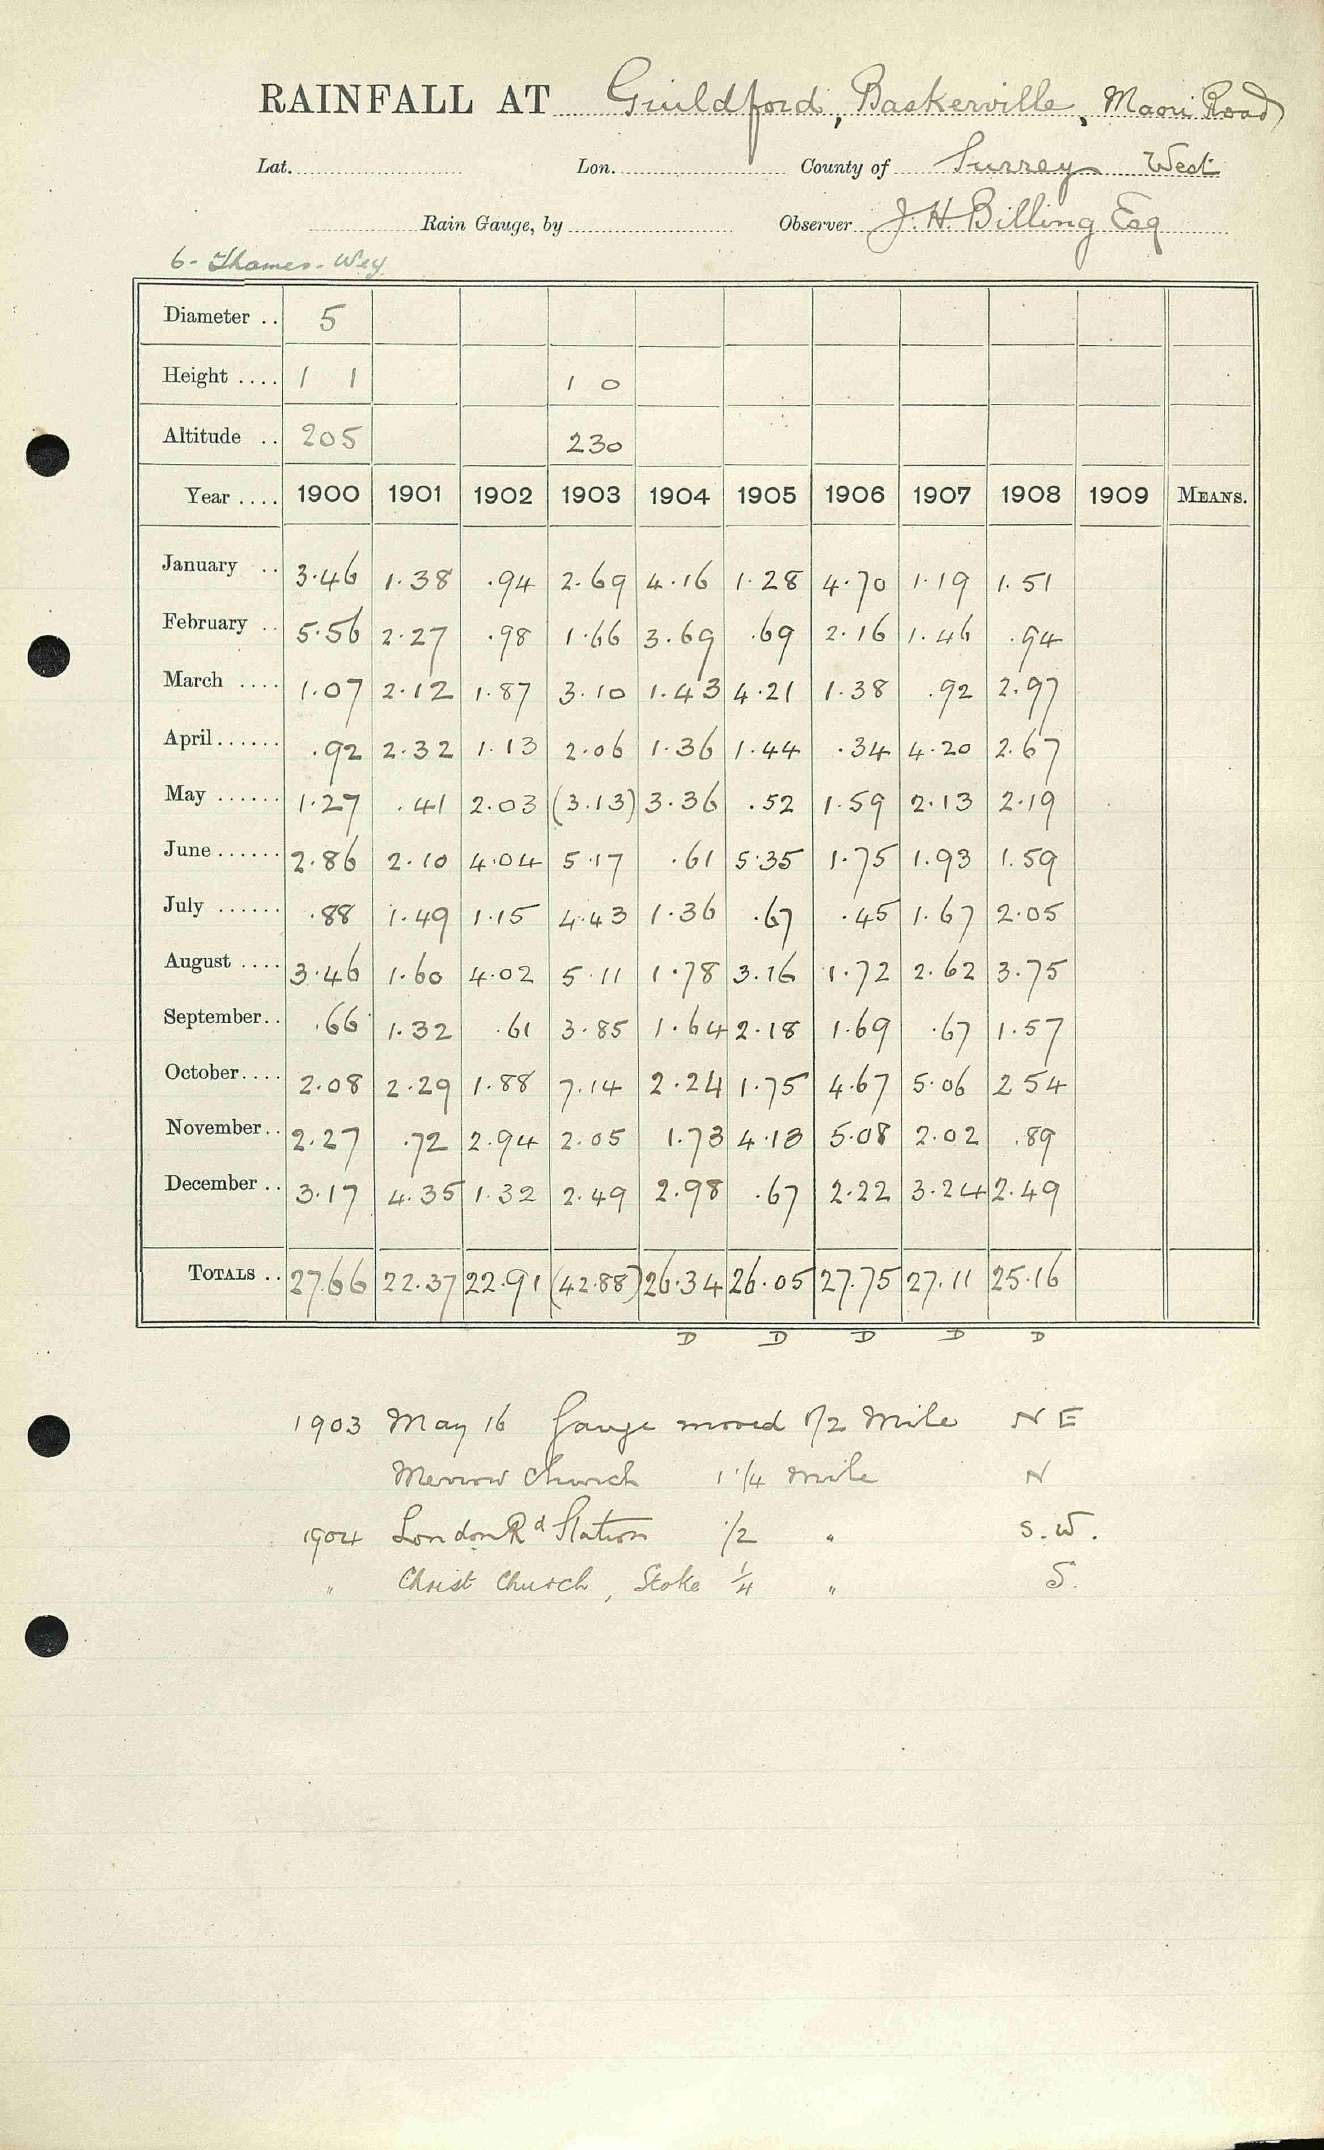 RAINFALL AT Guildford, Baskerville, Maori Road
Lat. Lon. County of Surrey West
Rain Gauge, by Observer J. H. Billing Esq
6 - Thames - Wey
Diameter .. 5
Height .... 1 1 1 0
Altitude .. 205 230
Year .... 1900 1901 1902 1903 1904 1905 1906 1907 1908 1909 MEANS.
January .. 3.46 1.38 .94 2.69 4.16 1.28 4.70 1.19 1.51
February .. 5.56 2.27 .98 1.66 3.69 .69 2.16 1.46 .94
March .... 1.07 2.12 1.87 3.10 1.43 4.21 1.38 .92 2.97
April...... .92 2.32 1.13 2.06 1.36 1.44 .34 4.20 2.67
May ...... 1.27 .41 2.03 (3.13) 3.36 .52 1.59 2.13 2.19
June...... 2.86 2.10 4.04 5.17 .61 5.35 1.75 1.93 1.59
July ...... .88 1.49 1.15 4.43 1.36 .67 .45 1.67 2.05
August .... 3.46 1.60 4.02 5.11 1.78 3.16 1.72 2.62 3.75
September.. .66 1.32 .61 3.85 1.64 2.18 1.69 .67 1.57
October.... 2.08 2.29 1.88 7.14 2.24 1.75 4.67 5.06 2 54
November.. 2.27 .72 2.94 2.05 1.73 4.13 5.08 2.02 .89
December .. 3.17 4.35 1.32 2.49 2.98 .67 2.22 3.24 2.49
TOTALS .. 27.66 22.37 22.91 (42.88) 26.34 26.05 27.75 27.11 25.16
D D D D D
1903 May 16 Gauge moved 1/2 Mile N E
Merrow Church 1 1/4 mile N
1904 London Rd Station 1/2 " S. W.
" Christ Church, Stoke 1/4 " S.